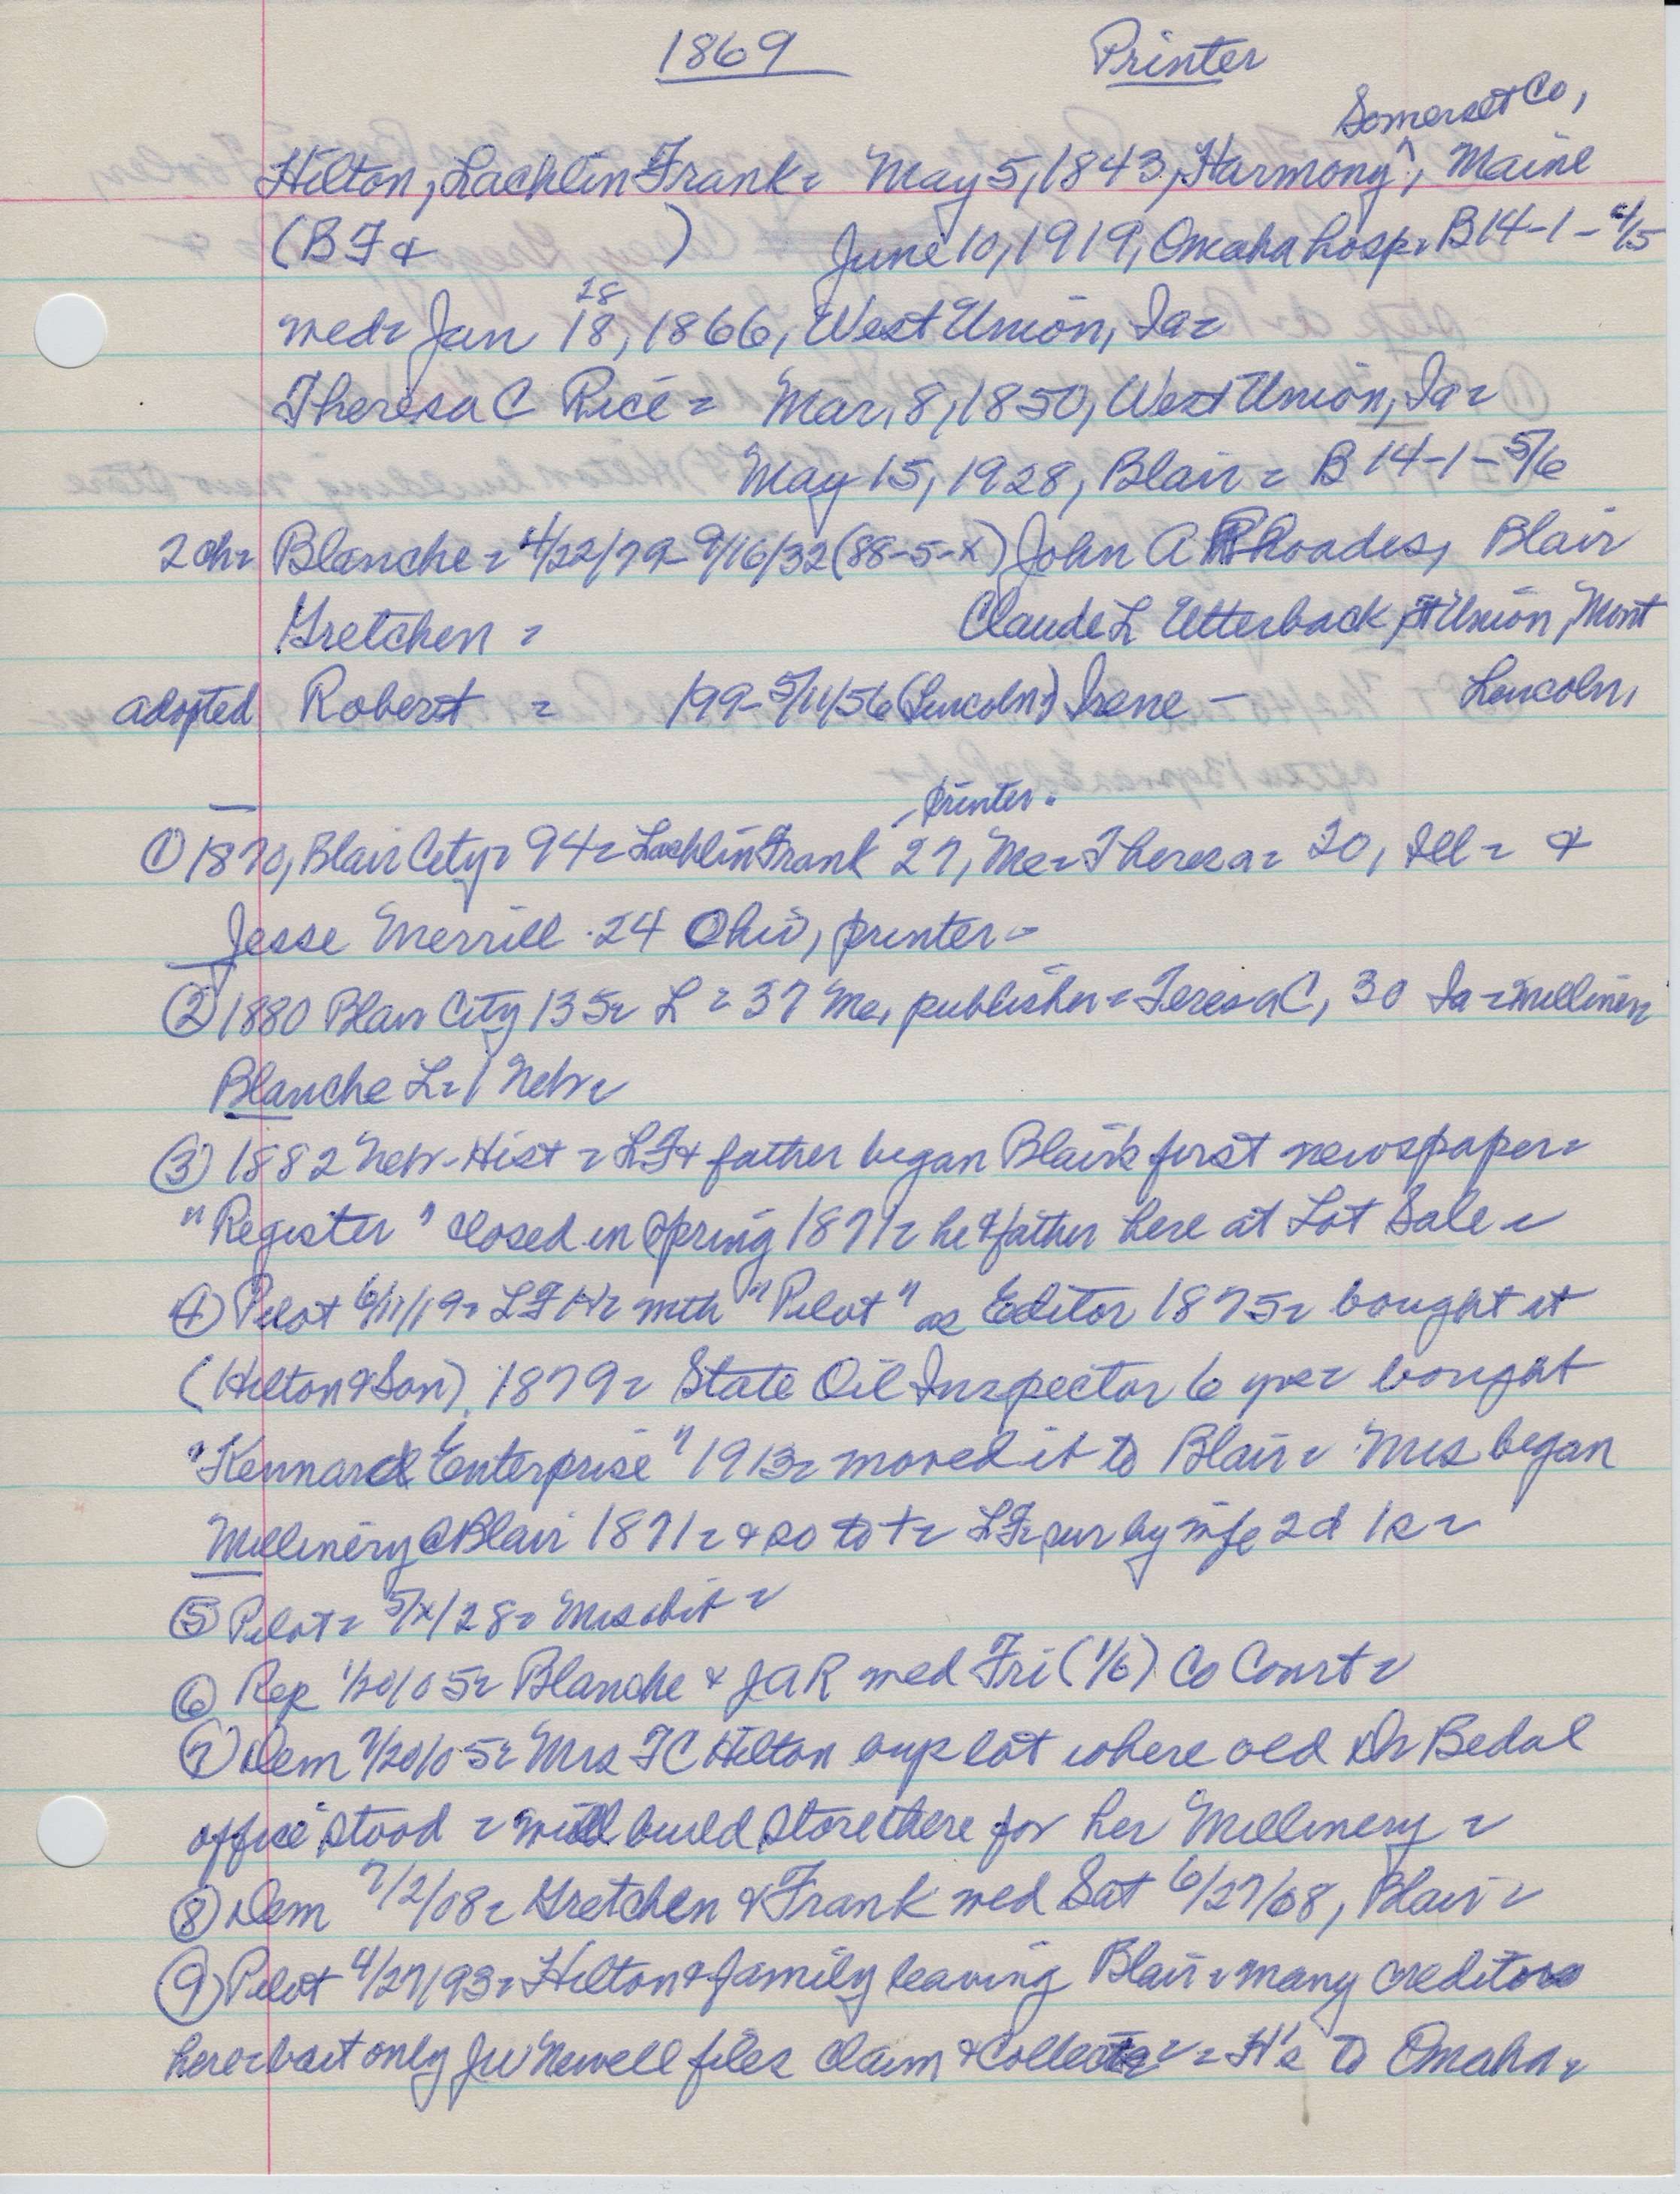 1869 Printer
Somerset Co,
Hilton, Lachlin Frank = May 5, 1843, Harmony ^, Maine
(B F & ) June 10, 1919, Omaha hosp = B 14-1-4/5
28
wed = Jan 18, 1866, West Union, Ia =
Theresa C Rice = Mar, 8, 1850, West Union, Ia =
May 15, 1928, Blair = B 14-1-5/6
2 ch = Blanche = 4/22/79-9/16/32 (88-5-X) John A Rhoades, Blair
Gretchen = Claude L Utterback, Ft Union, Mont
adopted Robert = 199-5/11/56 (Lincoln) Irene - Lincoln,
printer.
① 1870, Blair City = 94 = Lachlin Frank 27, Me = Theresa = 20, Ill = &
Jesse Merrill 24 Ohio, printer =
② 1880 Blair City 135 = L = 37 Me, publisher = Teresa C, 30 Ia = Milliner
Blanche L = 1 Nebr =
③ 1882 Nebr-Hist = LF & father began Blair's first newspaper =
"Register" closed in Spring 1871 = he & father here at Lot Sale =
④ Pilot 6/11/19 = LFH = with "Pilot" as Editor 1875 = bought it
(Hilton & Son) 1879 = State Oil Inspector 6 yrs = bought
"Kennard Enterprise" 1913 = moved it to Blair = Mrs began
Millinery @ Blair 1871 = & so to † = LF = sur by wife 2d 1s =
⑤ Pilot = 5/x/28 = Mrs obit =
⑥ Rep 1/20/05 = Blanche & JAR wed Fri (1/6) Co Court =
⑦ Dem 7/20/05 = Mrs TC Hilton buys lot where old Dr Bedal
office stood = will build store there for her Millinery =
⑧ Dem 7/2/08 = Gretchen & Frank wed Sat 6/27/08, Blair =
⑨ Pilot 4/27/93 = Hilton & family leaving Blair = many creditors
here = but only JW Newell files claim & Collects = = H's to Omaha =